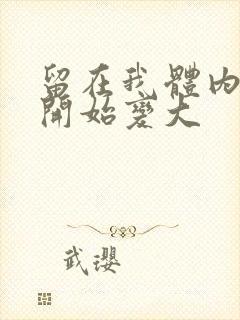 留在我體內
開始變大
武瓔